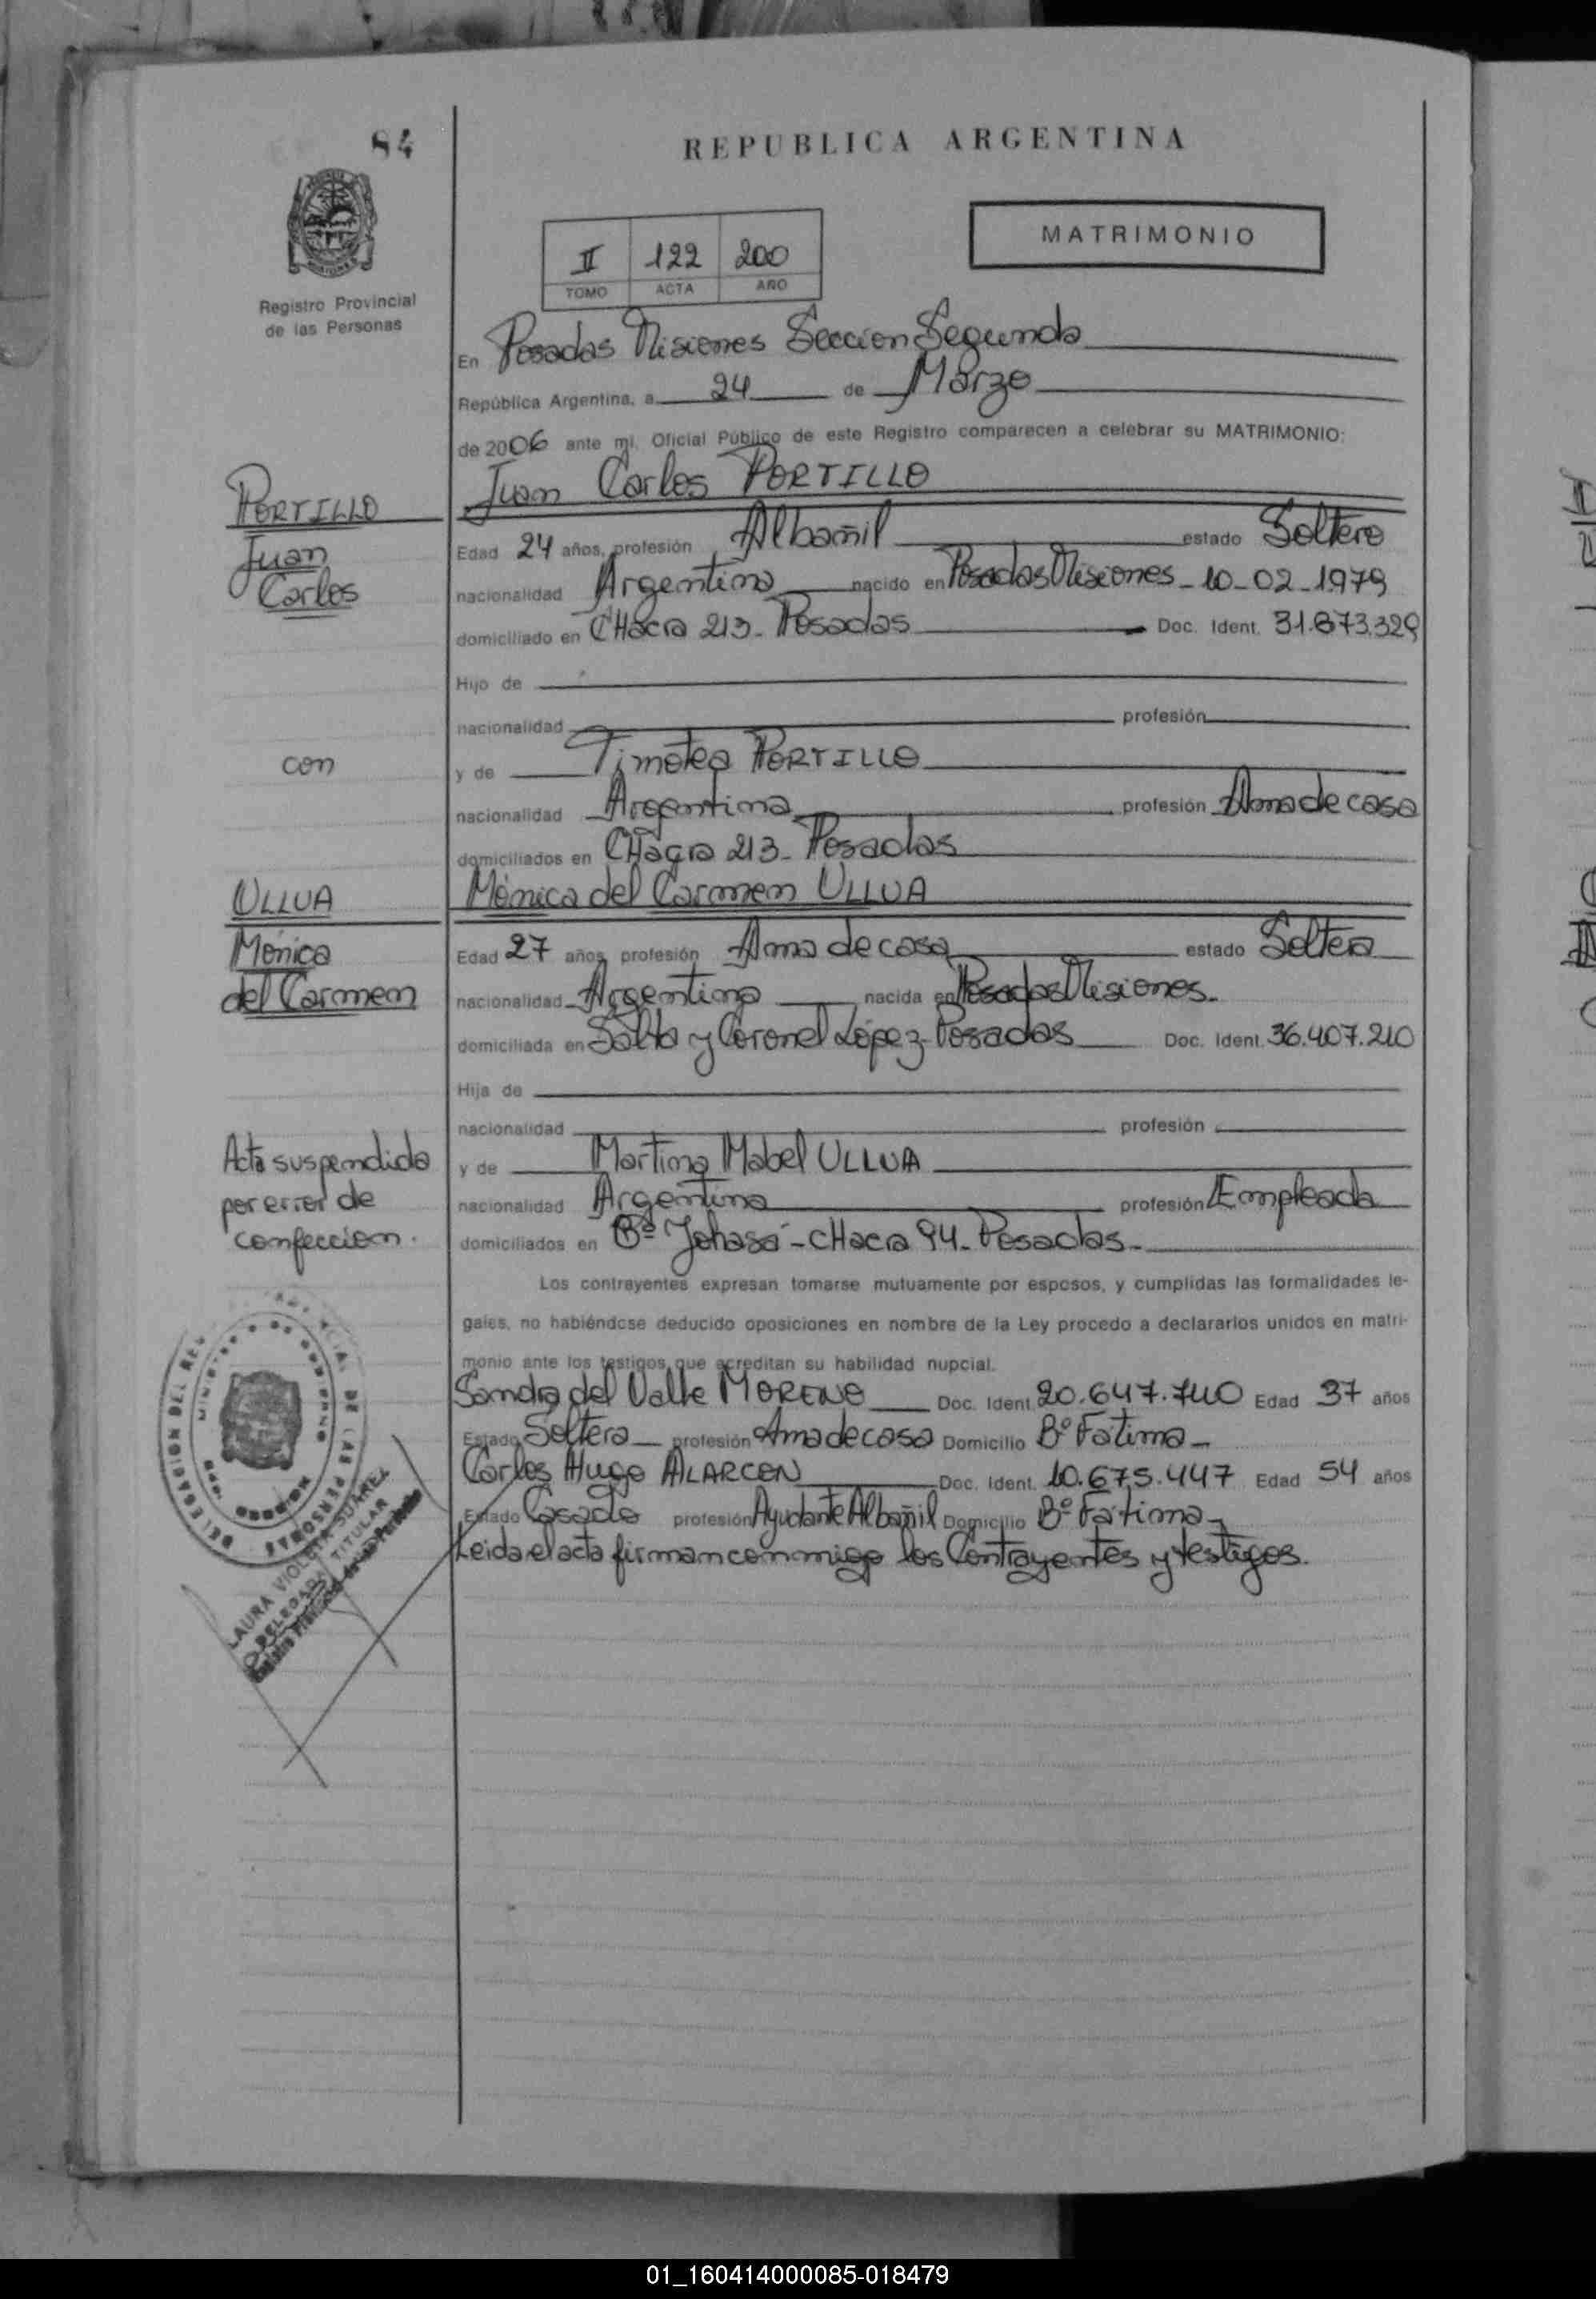 84
REPUBLICA ARGENTINA
MATRIMONIO
II 122 200
TOMO ACTA AÑO
Registro Provincial
de las Personas
En Posadas Misiones Seccion Segunda
República Argentina, a 24 de Marzo
de 2006 ante mi, Oficial Público de este Registro comparecen a celebrar su MATRIMONIO:
PORTILLO
Juan
Carlos
Juan Carlos PORTILLO
Edad 24 años, profesión Albañil estado Soltero
nacionalidad Argentino nacido en Posadas Misiones - 10-02-1979
domiciliado en CHacra 213- Posadas Doc. Ident. 31.873.329
Hijo de
nacionalidad profesión
con
y de Timotea PORTILLO
nacionalidad Argentina profesión Ama de casa
domiciliados en CHacra 213- Posadas
ULLUA
Mónica
del Carmen
Mónica del Carmen ULLUA
Edad 27 años, profesión Ama de casa estado Soltera
nacionalidad Argentina nacida en Posadas Misiones.
domiciliada en Salta y Coronel López- Posadas Doc. Ident. 36.407.210
Hija de
nacionalidad profesión
Acta suspendida
por error de
confeccion.
y de Martina Mabel ULLUA
nacionalidad Argentina profesión Empleada
domiciliados en Bº Yohasá - CHacra 94- Posadas-
Los contrayentes expresan tomarse mutuamente por esposos, y cumplidas las formalidades le-
gales, no habiéndose deducido oposiciones en nombre de la Ley procedo a declararlos unidos en matri-
monio ante los testigos que acreditan su habilidad nupcial.
Sandra del Valle MORENO Doc. Ident. 20.647.740 Edad 37 años
Estado Soltera profesión Ama de casa Domicilio Bº Fátima-
Carlos Hugo ALARCON Doc. Ident. 10.675.447 Edad 54 años
Estado Casado profesión Ayudante Albañil Domicilio Bº Fátima-
Leida el acta firman conmigo los Contrayentes y testigos.
LAURA VIOLETA SUAREZ
DELEGADA TITULAR
01_160414000085-018479